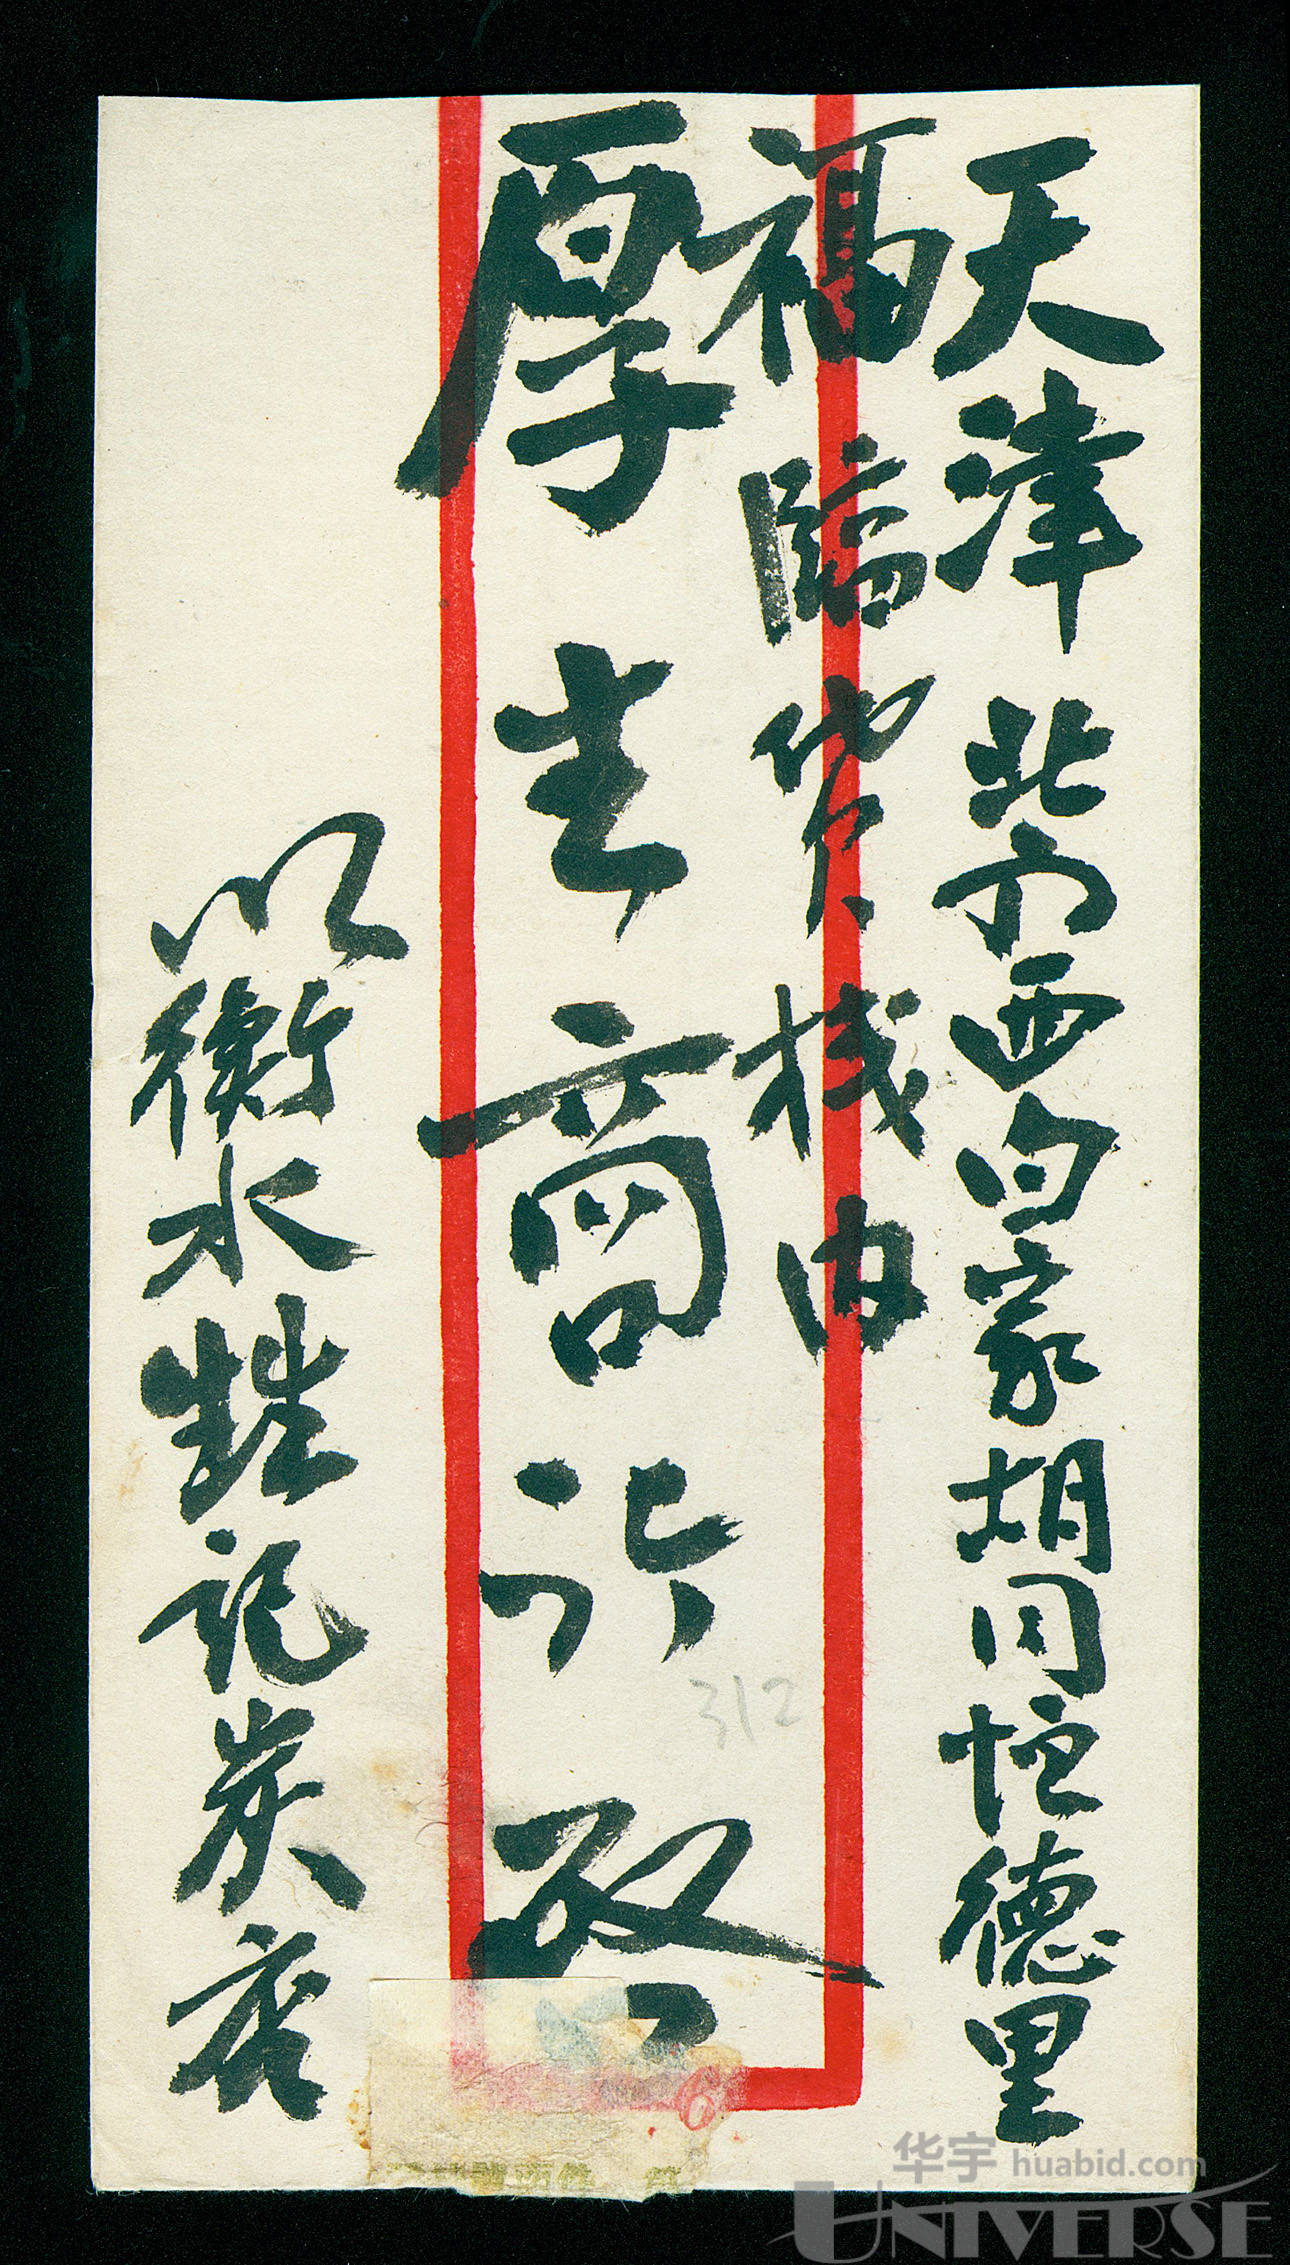 天津北门西白家胡同恒德里
福臨貨栈内
厚生商行 啟
衡水甡記炭店
312
6
华宇 huabid.com
UNIVERSE